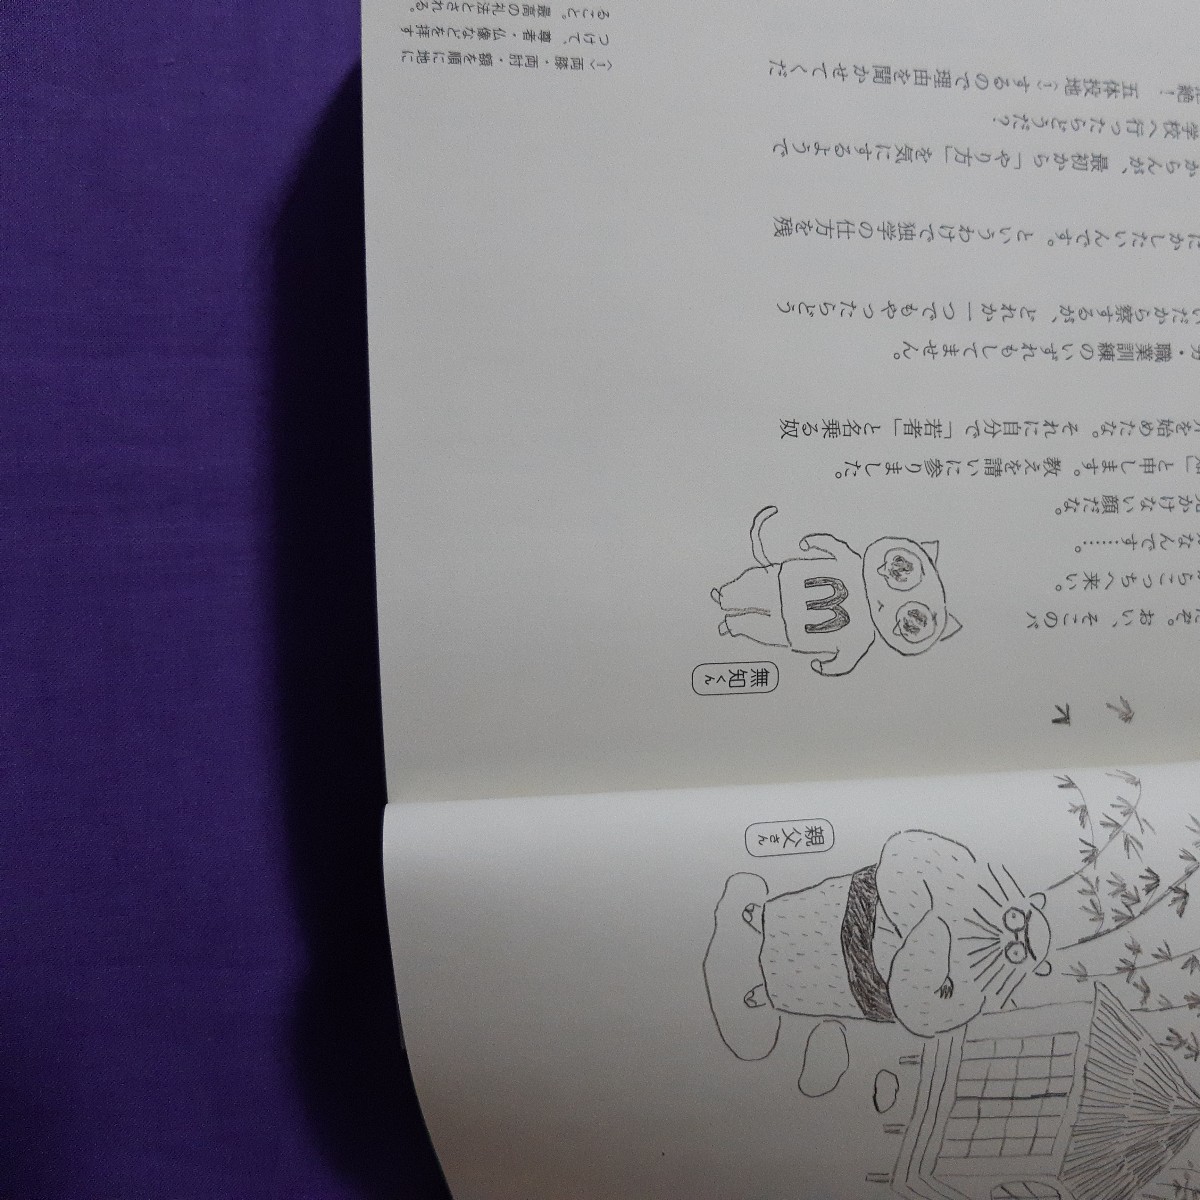 親父さん
無知くん
m
ぞ。おい、そこのバ
らこっちへ来い。
なんです……。
かけない顔だな。
」と申します。教えを請いに参りました。
を始めたな。それに自分で「若者」と名乗る奴
・職業訓練のいずれもしてません。
だから察するが、どれか一つでもやったらどう
かしたいんです。というわけで独学の仕方を残
からんが、最初から「やり方」を気にするようで
学校へ行ったらどうだ?
絶! 五体投地〈1〉するので理由を聞かせてくだ
〈1〉両膝・両肘・額を順に地に
つけて、尊者・仏像などを拝す
ること。最高の礼法とされる。